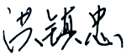 洪镇忠